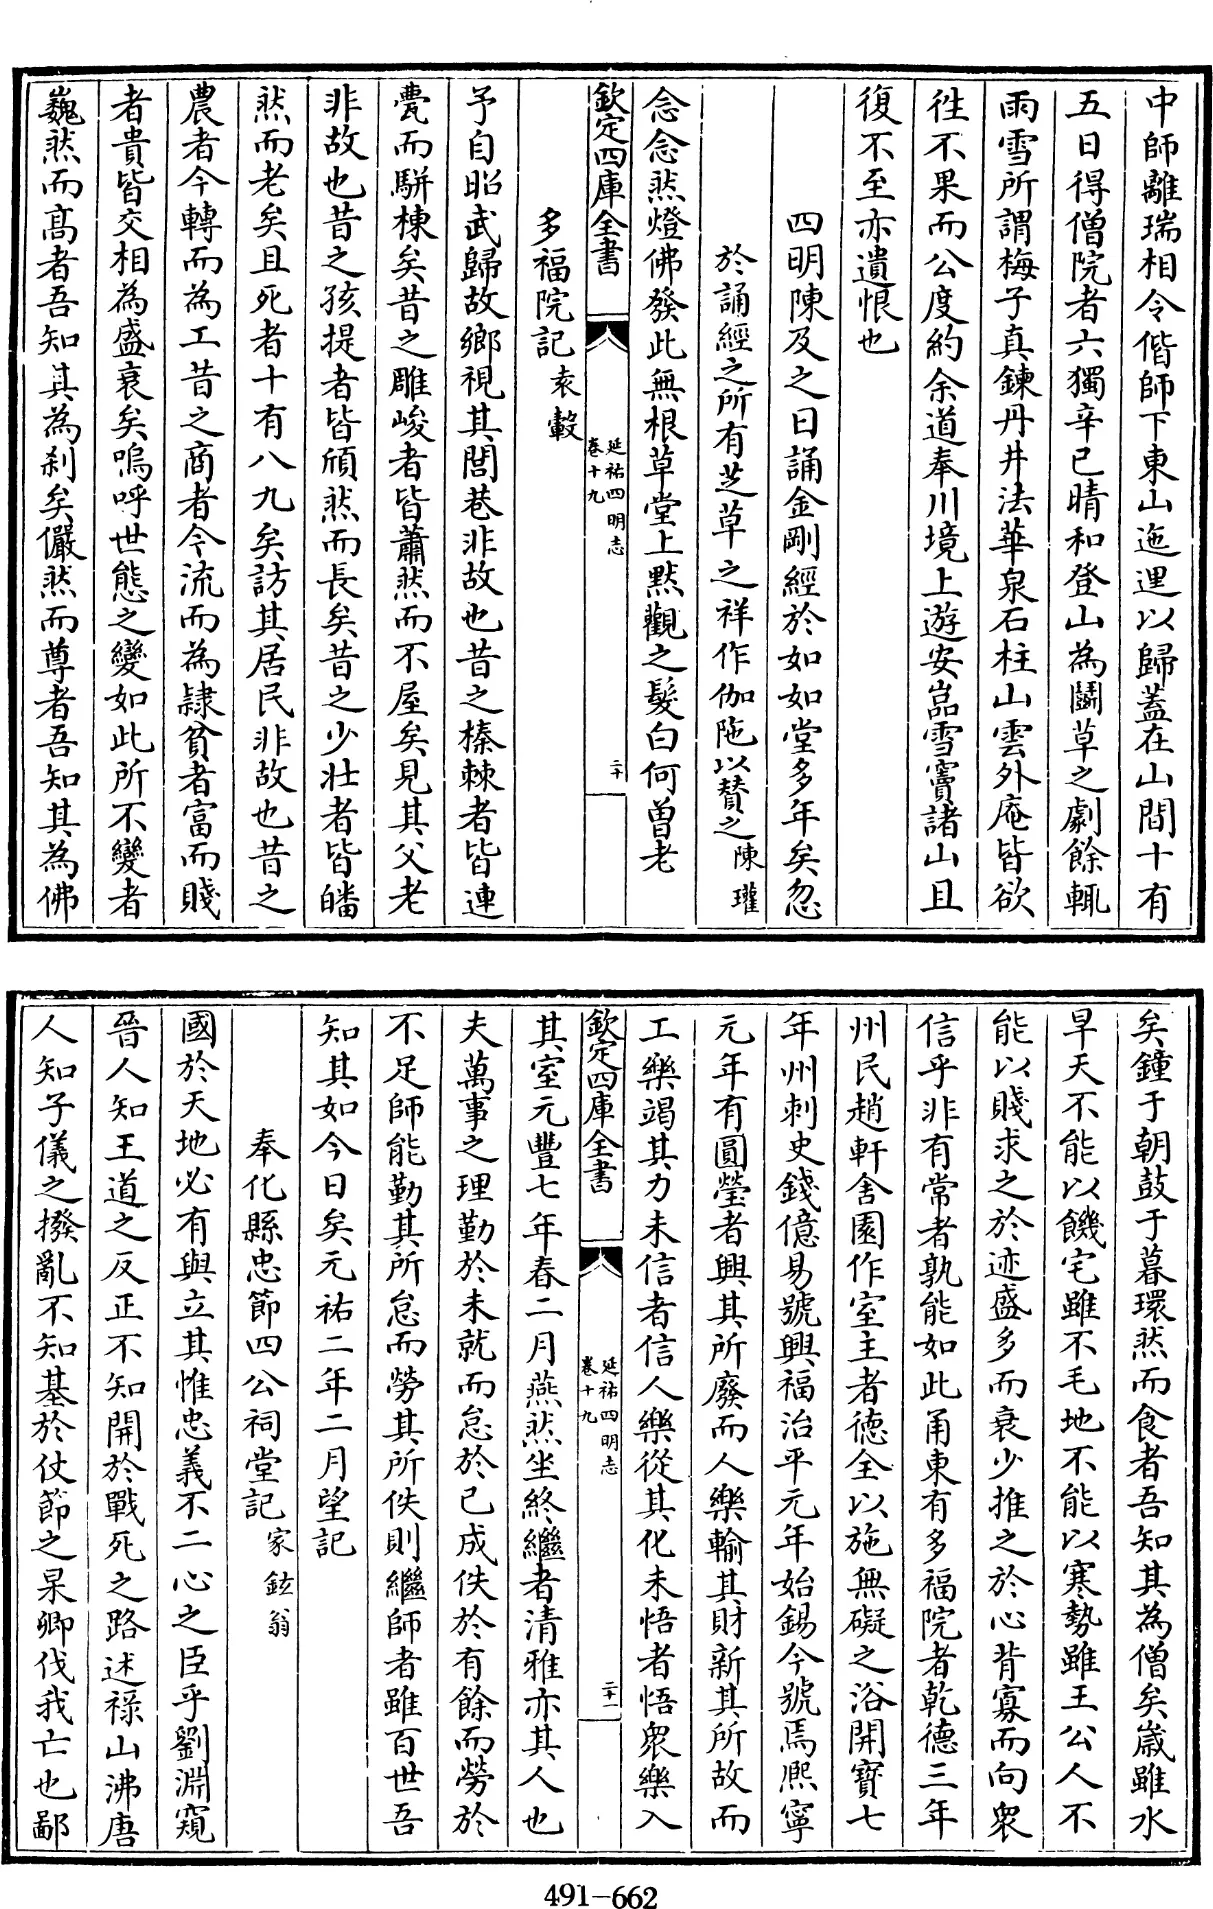 中師離瑞相令偕師下東山迤逦以歸蓋在山間十有
五日得僧院者六獨辛已晴和登山為鬭草之劇餘輒
雨雪所謂梅子真鍊丹井法華泉石柱山雲外庵皆欲
徃不果而公度約余道奉川境上遊安嵓雪竇諸山且
復不至亦遺恨也
四明陳及之日誦金剛經於如如堂多年矣忽
於誦經之所有芝草之祥作伽陁以贊之陳瓘
念念然燈佛發此無根草堂上默觀之髮白何曽老
欽定四庫全書
延祐四明志
卷十九
二十
多福院記袁轂
予自昭武歸故鄉視其閭巷非故也昔之榛棘者皆連
甍而駢棟矣昔之雕峻者皆蕭然而不屋矣見其父老
非故也昔之孩提者皆頎然而長矣昔之少壯者皆皤
然而老矣且死者十有八九矣訪其居民非故也昔之
農者今轉而為工昔之商者今流而為隷貧者富而賤
者貴皆交相為盛衰矣嗚呼世態之變如此所不變者
巍然而髙者吾知其為刹矣儼然而尊者吾知其為佛
矣鐘于朝鼓于暮環然而食者吾知其為僧矣嵗雖水
旱天不能以饑宅雖不毛地不能以寒勢雖王公人不
能以賤求之於迹盛多而衰少推之於心背寡而向衆
信乎非有常者孰能如此甬東有多福院者乾德三年
州民趙軒舍園作室主者徳全以施無礙之浴開寳七
年州刺史錢億易號興福治平元年始錫今號焉熈寧
元年有圓瑩者興其所廢而人樂輸其財新其所故而
工樂竭其力未信者信人樂從其化未悟者悟衆樂入
欽定四庫全書
延祐四明志
卷十九
二十一
其室元豐七年春二月燕然坐終繼者清雅亦其人也
夫萬事之理勤於未就而怠於已成佚於有餘而勞於
不足師能勤其所怠而勞其所佚則繼師者雖百世吾
知其如今日矣元祐二年二月望記
奉化縣忠節四公祠堂記家鉉翁
國於天地必有與立其惟忠義不二心之臣乎劉淵窺
晉人知王道之反正不知開於戰死之路述禄山沸唐
人知子儀之撥亂不知基於仗節之杲卿伐我亡也鄙
491-662